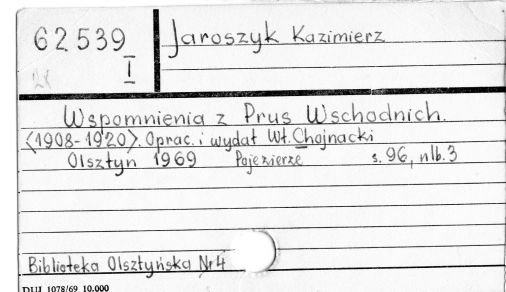 62539
I
Jaroszyk Kazimierz
Wspomnienia z Prus Wschodnich.
<1908-1920>. Oprac. i wydał Wł. Chojnacki
Olsztyn 1969 Pojezierze s. 96, nlb. 3
Biblioteka Olsztyńska Nr 4
DUJ 1078/69 10.000